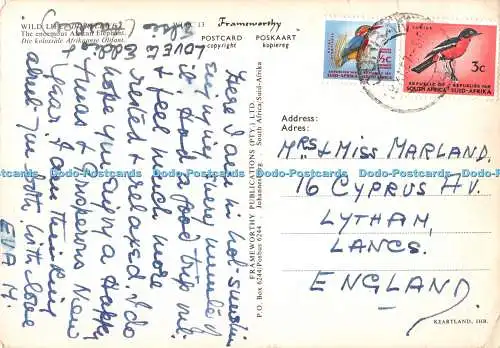 WILD LIFE
The enormous African Elephant.
Die kolossale Afrikaanse Olifant.
13
Frameworthy
POSTCARD
copyright
POSKAART
kopiereg
Here I am in hot sunshine
enjoying a few months of
it. Had a good trip out
& feel much more
rested & relaxed. I do
hope you enjoy a Happy
Xmas & Prosperous New
Year. I am thinking
about you both, with love
EVA H.
LOVE to Eddie
FRAMEWORTHY PUBLICATIONS (PTY.) LTD.
P.O. Box 6244/Posbus 6244
Johannesburg
South Africa/Suid-Afrika
REPUBLIC OF
SOUTH AFRICA
REPUBLIEK VAN
SUID-AFRIKA
½c
REPUBLIC OF
SOUTH AFRICA
REPUBLIEK VAN
SUID-AFRIKA
3c
Address:
Adres:
MRS & MISS MARLAND.
16 CYPRUS AV.
LYTHAM,
LANCS.
ENGLAND.
KEARTLAND, JHB.
Dodo-Postcards